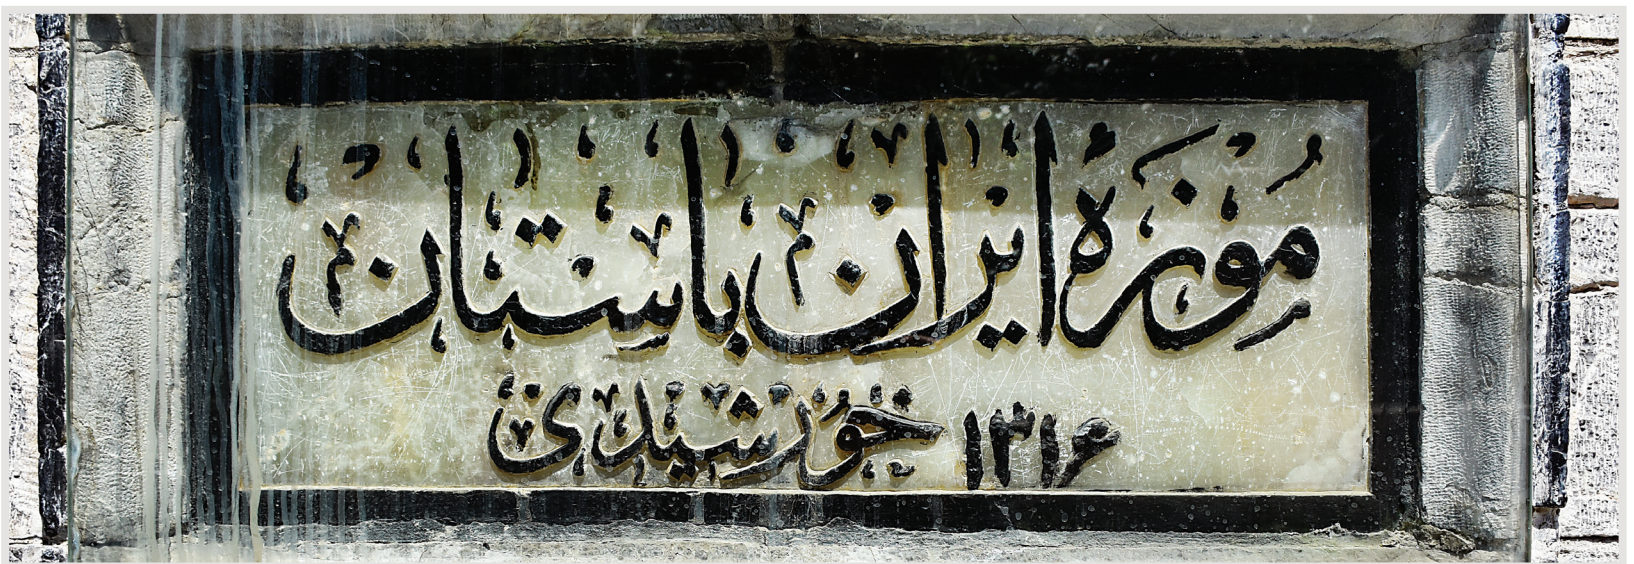 موزه ایران باستان
۱۳۱۶ خورشیدی